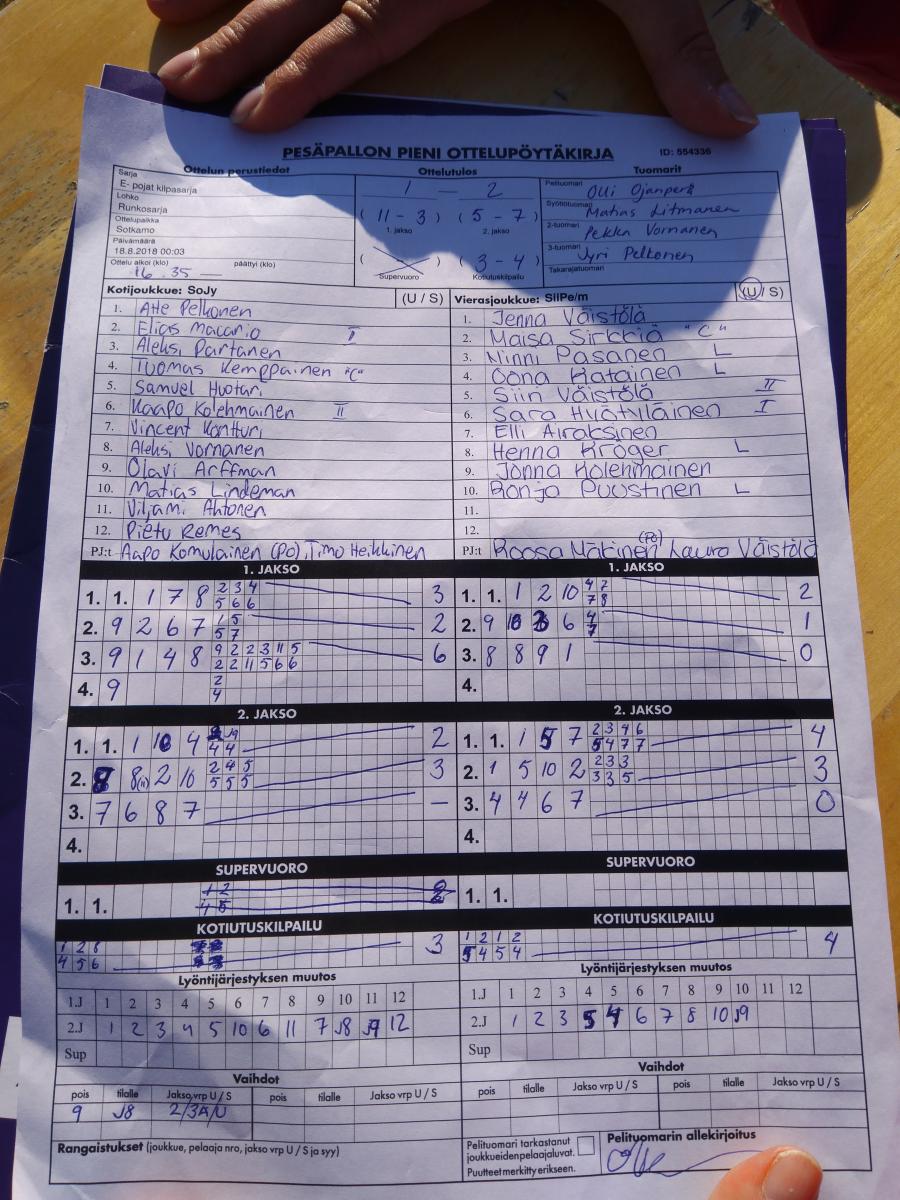 PESÄPALLON PIENI OTTELUPÖYTÄKIRJA ID: 554336
Ottelun perustiedot Ottelutulos Tuomarit
Sarja
E- pojat kilpasarja
Lohko
Runkosarja
Ottelupaikka
Sotkamo
Päivämäärä
18.8.2018 00:03
Ottelu alkoi (klo) päättyi (klo)
16 35 —
1 — 2
( 11 - 3 ) ( 5 - 7 )
1. jakso 2. jakso
( ) ( 3 - 4 )
Supervuoro Kotiutuskilpailu
Pelituomari Olli Ojanperä
Syöttötuomari Matias Litmanen
2-tuomari Pekka Vornanen
3-tuomari Jyri Pelkonen
Takarajatuomari
Kotijoukkue: SoJy (U / S)
1. Atte Pelkonen
2. Elias Macario I
3. Aleksi Partanen
4. Tuomas Kemppainen "C"
5. Samuel Huotari
6. Kaapo Kolehmainen II
7. Vincent Kontturi
8. Aleksi Vornanen
9. Olavi Arffman
10. Matias Lindeman
11. Viljami Ahtonen
12. Pietu Remes
PJ:t Aapo Komulainen (PO), Timo Heikkinen
Vierasjoukkue: SiiPe/m (U / S)
1. Jenna Väistölä
2. Maisa Sirkkiä "C"
3. Ninni Pasanen L
4. Oona Ratainen L
5. Siin Väistölä II
6. Sara Hyätyläinen I
7. Elli Airaksinen
8. Henna Kröger L
9. Jonna Kolehmainen
10. Ronja Puustinen L
11.
12.
PJ:t Roosa Mäkinen (PO) Laura Väistölä
1. JAKSO
1. 1. 1 7 8 2 3 4 3
5 6 6
2. 9 2 6 7 1 5 2
5 7
3. 9 1 4 8 9 2 2 3 11 5 6
2 2 11 5 6 6
4. 9 2
4
1. JAKSO
1. 1. 1 2 10 4 7 2
7 8
2. 9 10 3 6 4 1
7
3. 8 8 9 1 0
4.
2. JAKSO
1. 1. 1 10 4 J9 2
4 4
2. 8 8(11) 2 10 2 4 5 3
5 5 5
3. 7 6 8 7 —
4.
2. JAKSO
1. 1. 1 5 7 2 3 4 6 4
5 4 7 7
2. 1 5 10 2 2 3 3 3
3 3 5
3. 4 4 6 7 0
4.
SUPERVUORO
1. 1. 1 2
4 5
SUPERVUORO
1. 1.
KOTIUTUSKILPAILU
1 2 8 3
4 5 6
KOTIUTUSKILPAILU
1 2 1 2 4
5 4 5 4
Lyöntijärjestyksen muutos
1.J 1 2 3 4 5 6 7 8 9 10 11 12
2.J 1 2 3 4 5 10 6 11 7 J8 J9 12
Sup
Lyöntijärjestyksen muutos
1.J 1 2 3 4 5 6 7 8 9 10 11 12
2.J 1 2 3 5 4 6 7 8 10 J9
Sup
Vaihdot
pois tilalle Jakso,vrp U / S pois tilalle Jakso vrp U / S
9 J8 2/3A/U
Vaihdot
pois tilalle Jakso vrp U / S pois tilalle Jakso vrp U / S
Rangaistukset (joukkue, pelaaja nro, jakso vrp U / S ja syy)
Pelituomari tarkastanut
joukkueidenpelaajaluvat.
Puutteet merkitty erikseen.
Pelituomarin allekirjoitus